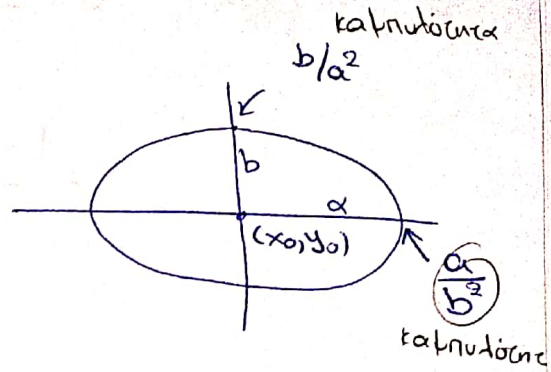 καμπυλότητα
b/a²
b
α
(x₀, y₀)
a/b²
καμπυλότητ